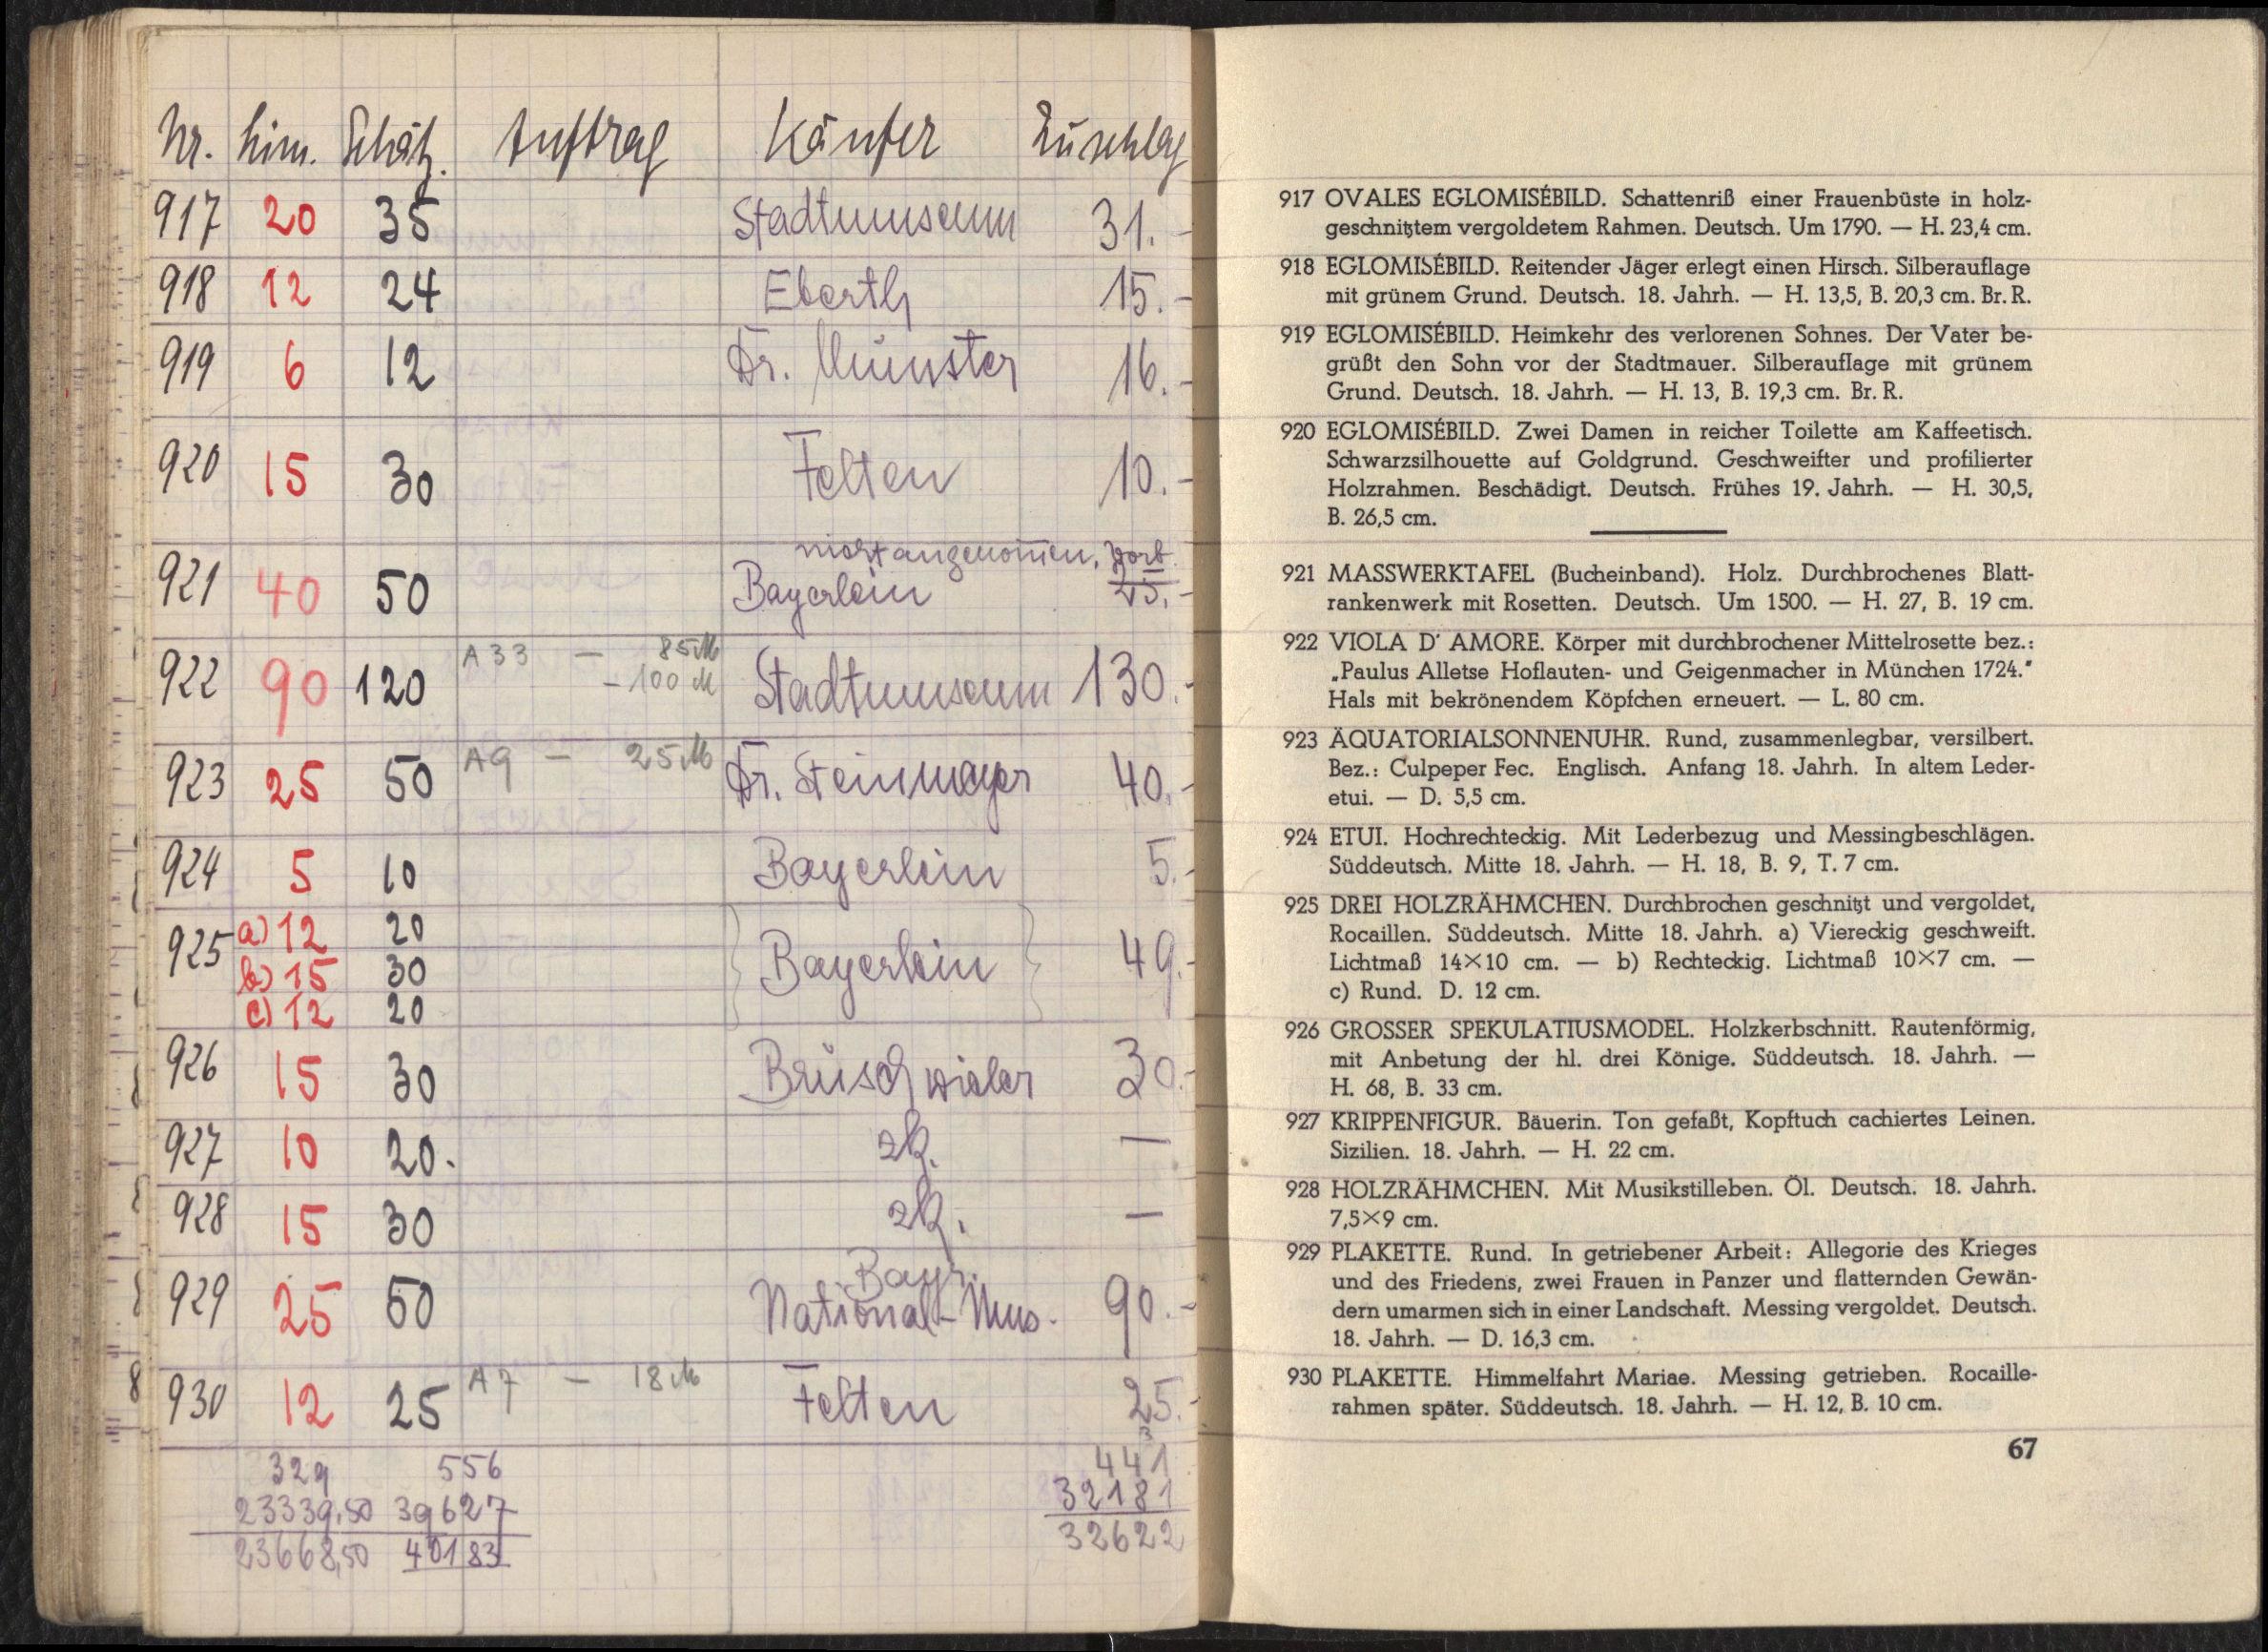 Nr. Lim. Schätz. Auftrag Käufer Zuschlag
917 20 35 Stadtmuseum 31.-
918 12 24 Eberth 15.-
919 6 12 Dr. Münster 16.-
920 15 30 Felten 10.-
nicht angenommen, Vorb.
921 40 50 Bayerlein 25.-
A33 — 85 M
922 90 120 - 100 M Stadtmuseum 130.-
923 25 50 A9 — 25 M Dr. Steinmayer 40.-
924 5 10 Bayerlein 5.-
925 a) 12 20
b) 15 30 Bayerlein 49.-
c) 12 20
926 15 30 Brüschwieler 30.-
927 10 20. zk. —
928 15 30 zk. —
Bayr.
929 25 50 National-Mus. 90.-
930 12 25 A7 — 18 M Felten 25.-
329 556 441
23339,50 39627 32181
23668,50 40183 32622
917 OVALES EGLOMISÉBILD. Schattenriß einer Frauenbüste in holz-
geschnitztem vergoldetem Rahmen. Deutsch. Um 1790. — H. 23,4 cm.
918 EGLOMISÉBILD. Reitender Jäger erlegt einen Hirsch. Silberauflage
mit grünem Grund. Deutsch. 18. Jahrh. — H. 13,5, B. 20,3 cm. Br. R.
919 EGLOMISÉBILD. Heimkehr des verlorenen Sohnes. Der Vater be-
grüßt den Sohn vor der Stadtmauer. Silberauflage mit grünem
Grund. Deutsch. 18. Jahrh. — H. 13, B. 19,3 cm. Br. R.
920 EGLOMISÉBILD. Zwei Damen in reicher Toilette am Kaffeetisch.
Schwarzsilhouette auf Goldgrund. Geschweifter und profilierter
Holzrahmen. Beschädigt. Deutsch. Frühes 19. Jahrh. — H. 30,5,
B. 26,5 cm.
921 MASSWERKTAFEL (Bucheinband). Holz. Durchbrochenes Blatt-
rankenwerk mit Rosetten. Deutsch. Um 1500. — H. 27, B. 19 cm.
922 VIOLA D' AMORE. Körper mit durchbrochener Mittelrosette bez.:
„Paulus Alletse Hoflauten- und Geigenmacher in München 1724."
Hals mit bekrönendem Köpfchen erneuert. — L. 80 cm.
923 ÄQUATORIALSONNENUHR. Rund, zusammenlegbar, versilbert.
Bez.: Culpeper Fec. Englisch. Anfang 18. Jahrh. In altem Leder-
etui. — D. 5,5 cm.
924 ETUI. Hochrechteckig. Mit Lederbezug und Messingbeschlägen.
Süddeutsch. Mitte 18. Jahrh. — H. 18, B. 9, T. 7 cm.
925 DREI HOLZRÄHMCHEN. Durchbrochen geschnitzt und vergoldet,
Rocaillen. Süddeutsch. Mitte 18. Jahrh. a) Viereckig geschweift.
Lichtmaß 14×10 cm. — b) Rechteckig. Lichtmaß 10×7 cm. —
c) Rund. D. 12 cm.
926 GROSSER SPEKULATIUSMODEL. Holzkerbschnitt. Rautenförmig,
mit Anbetung der hl. drei Könige. Süddeutsch. 18. Jahrh. —
H. 68, B. 33 cm.
927 KRIPPENFIGUR. Bäuerin. Ton gefaßt, Kopftuch cachiertes Leinen.
Sizilien. 18. Jahrh. — H. 22 cm.
928 HOLZRÄHMCHEN. Mit Musikstilleben. Öl. Deutsch. 18. Jahrh.
7,5×9 cm.
929 PLAKETTE. Rund. In getriebener Arbeit: Allegorie des Krieges
und des Friedens, zwei Frauen in Panzer und flatternden Gewän-
dern umarmen sich in einer Landschaft. Messing vergoldet. Deutsch.
18. Jahrh. — D. 16,3 cm.
930 PLAKETTE. Himmelfahrt Mariae. Messing getrieben. Rocaille-
rahmen später. Süddeutsch. 18. Jahrh. — H. 12, B. 10 cm.
67